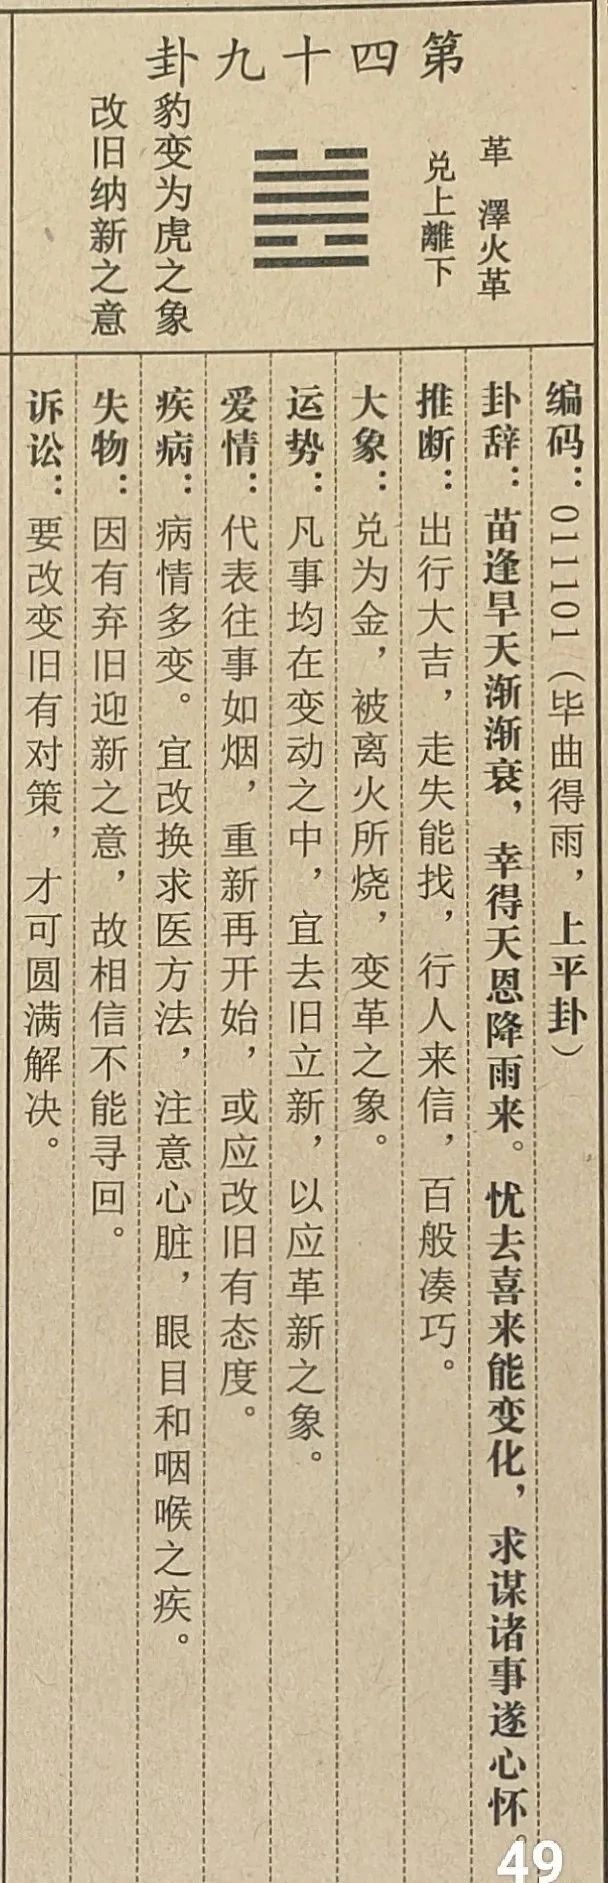 第四十九卦
革 澤火革
兑上離下
豹变为虎之象
改旧纳新之意
编码：011101（毕曲得雨，上平卦）
卦辞：苗逢旱天渐渐衰，幸得天恩降雨来。忧去喜来能变化，求谋诸事遂心怀。
推断：出行大吉，走失能找，行人来信，百般凑巧。
大象：兑为金，被离火所烧，变革之象。
运势：凡事均在变动之中，宜去旧立新，以应革新之象。
爱情：代表往事如烟，重新再开始，或应改旧有态度。
疾病：病情多变。宜改换求医方法，注意心脏，眼目和咽喉之疾。
失物：因有弃旧迎新之意，故相信不能寻回。
诉讼：要改变旧有对策，才可圆满解决。
49